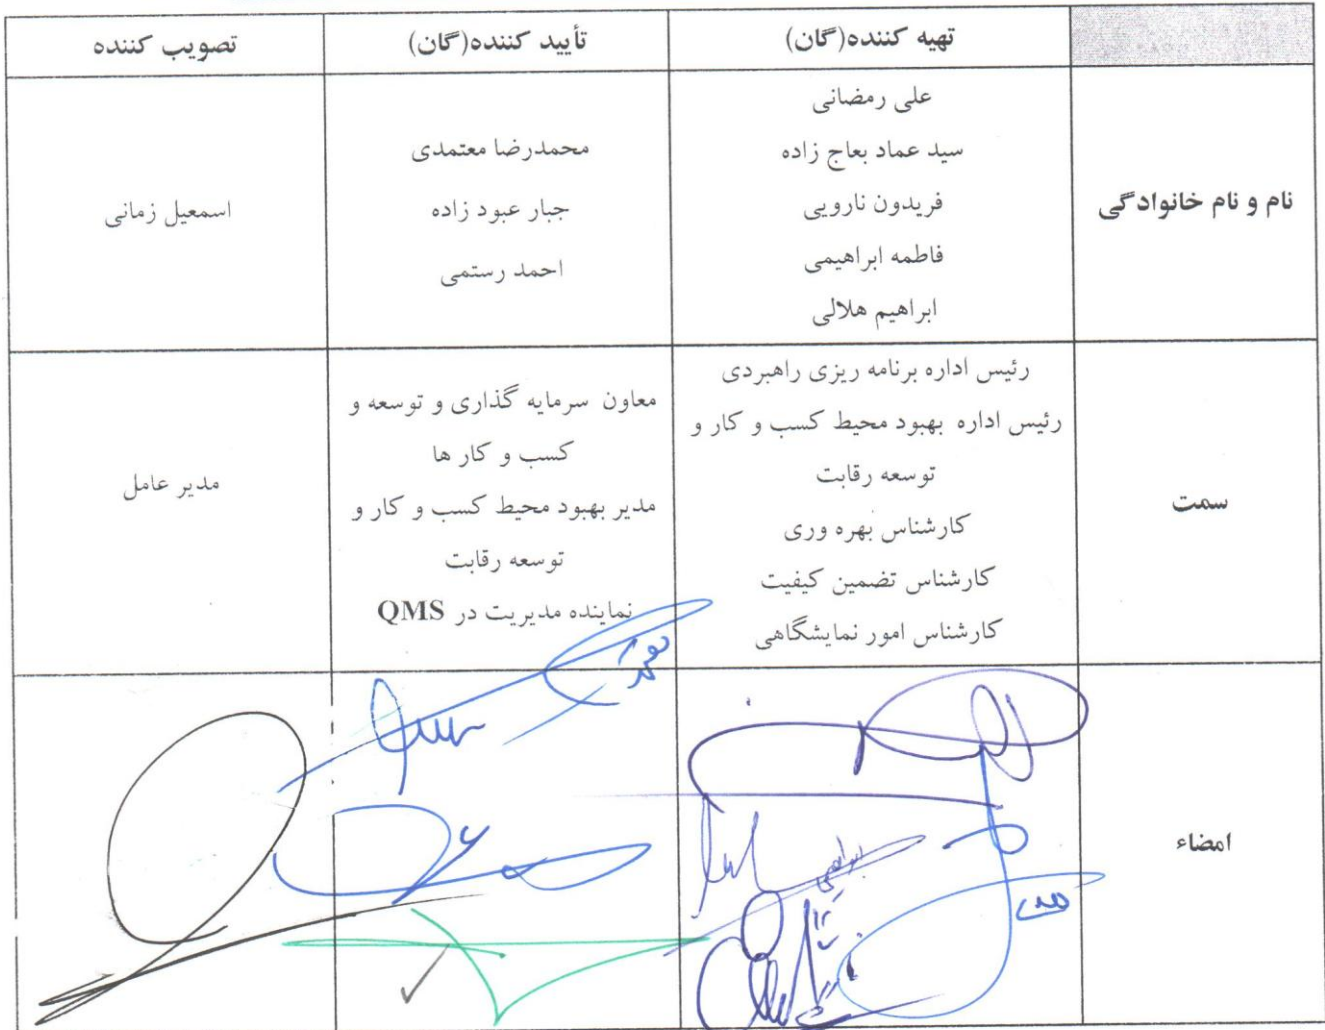 تهیه کننده(گان)
تأیید کننده(گان)
تصویب کننده
نام و نام خانوادگی
علی رمضانی
سید عماد بعاج زاده
فریدون نارویی
فاطمه ابراهیمی
ابراهیم هلالی
محمدرضا معتمدی
جبار عبود زاده
احمد رستمی
اسمعیل زمانی
سمت
رئیس اداره برنامه ریزی راهبردی
رئیس اداره بهبود محیط کسب و کار و
توسعه رقابت
کارشناس بهره وری
کارشناس تضمین کیفیت
کارشناس امور نمایشگاهی
معاون سرمایه گذاری و توسعه و
کسب و کار ها
مدیر بهبود محیط کسب و کار و
توسعه رقابت
نماینده مدیریت در QMS
مدیر عامل
امضاء